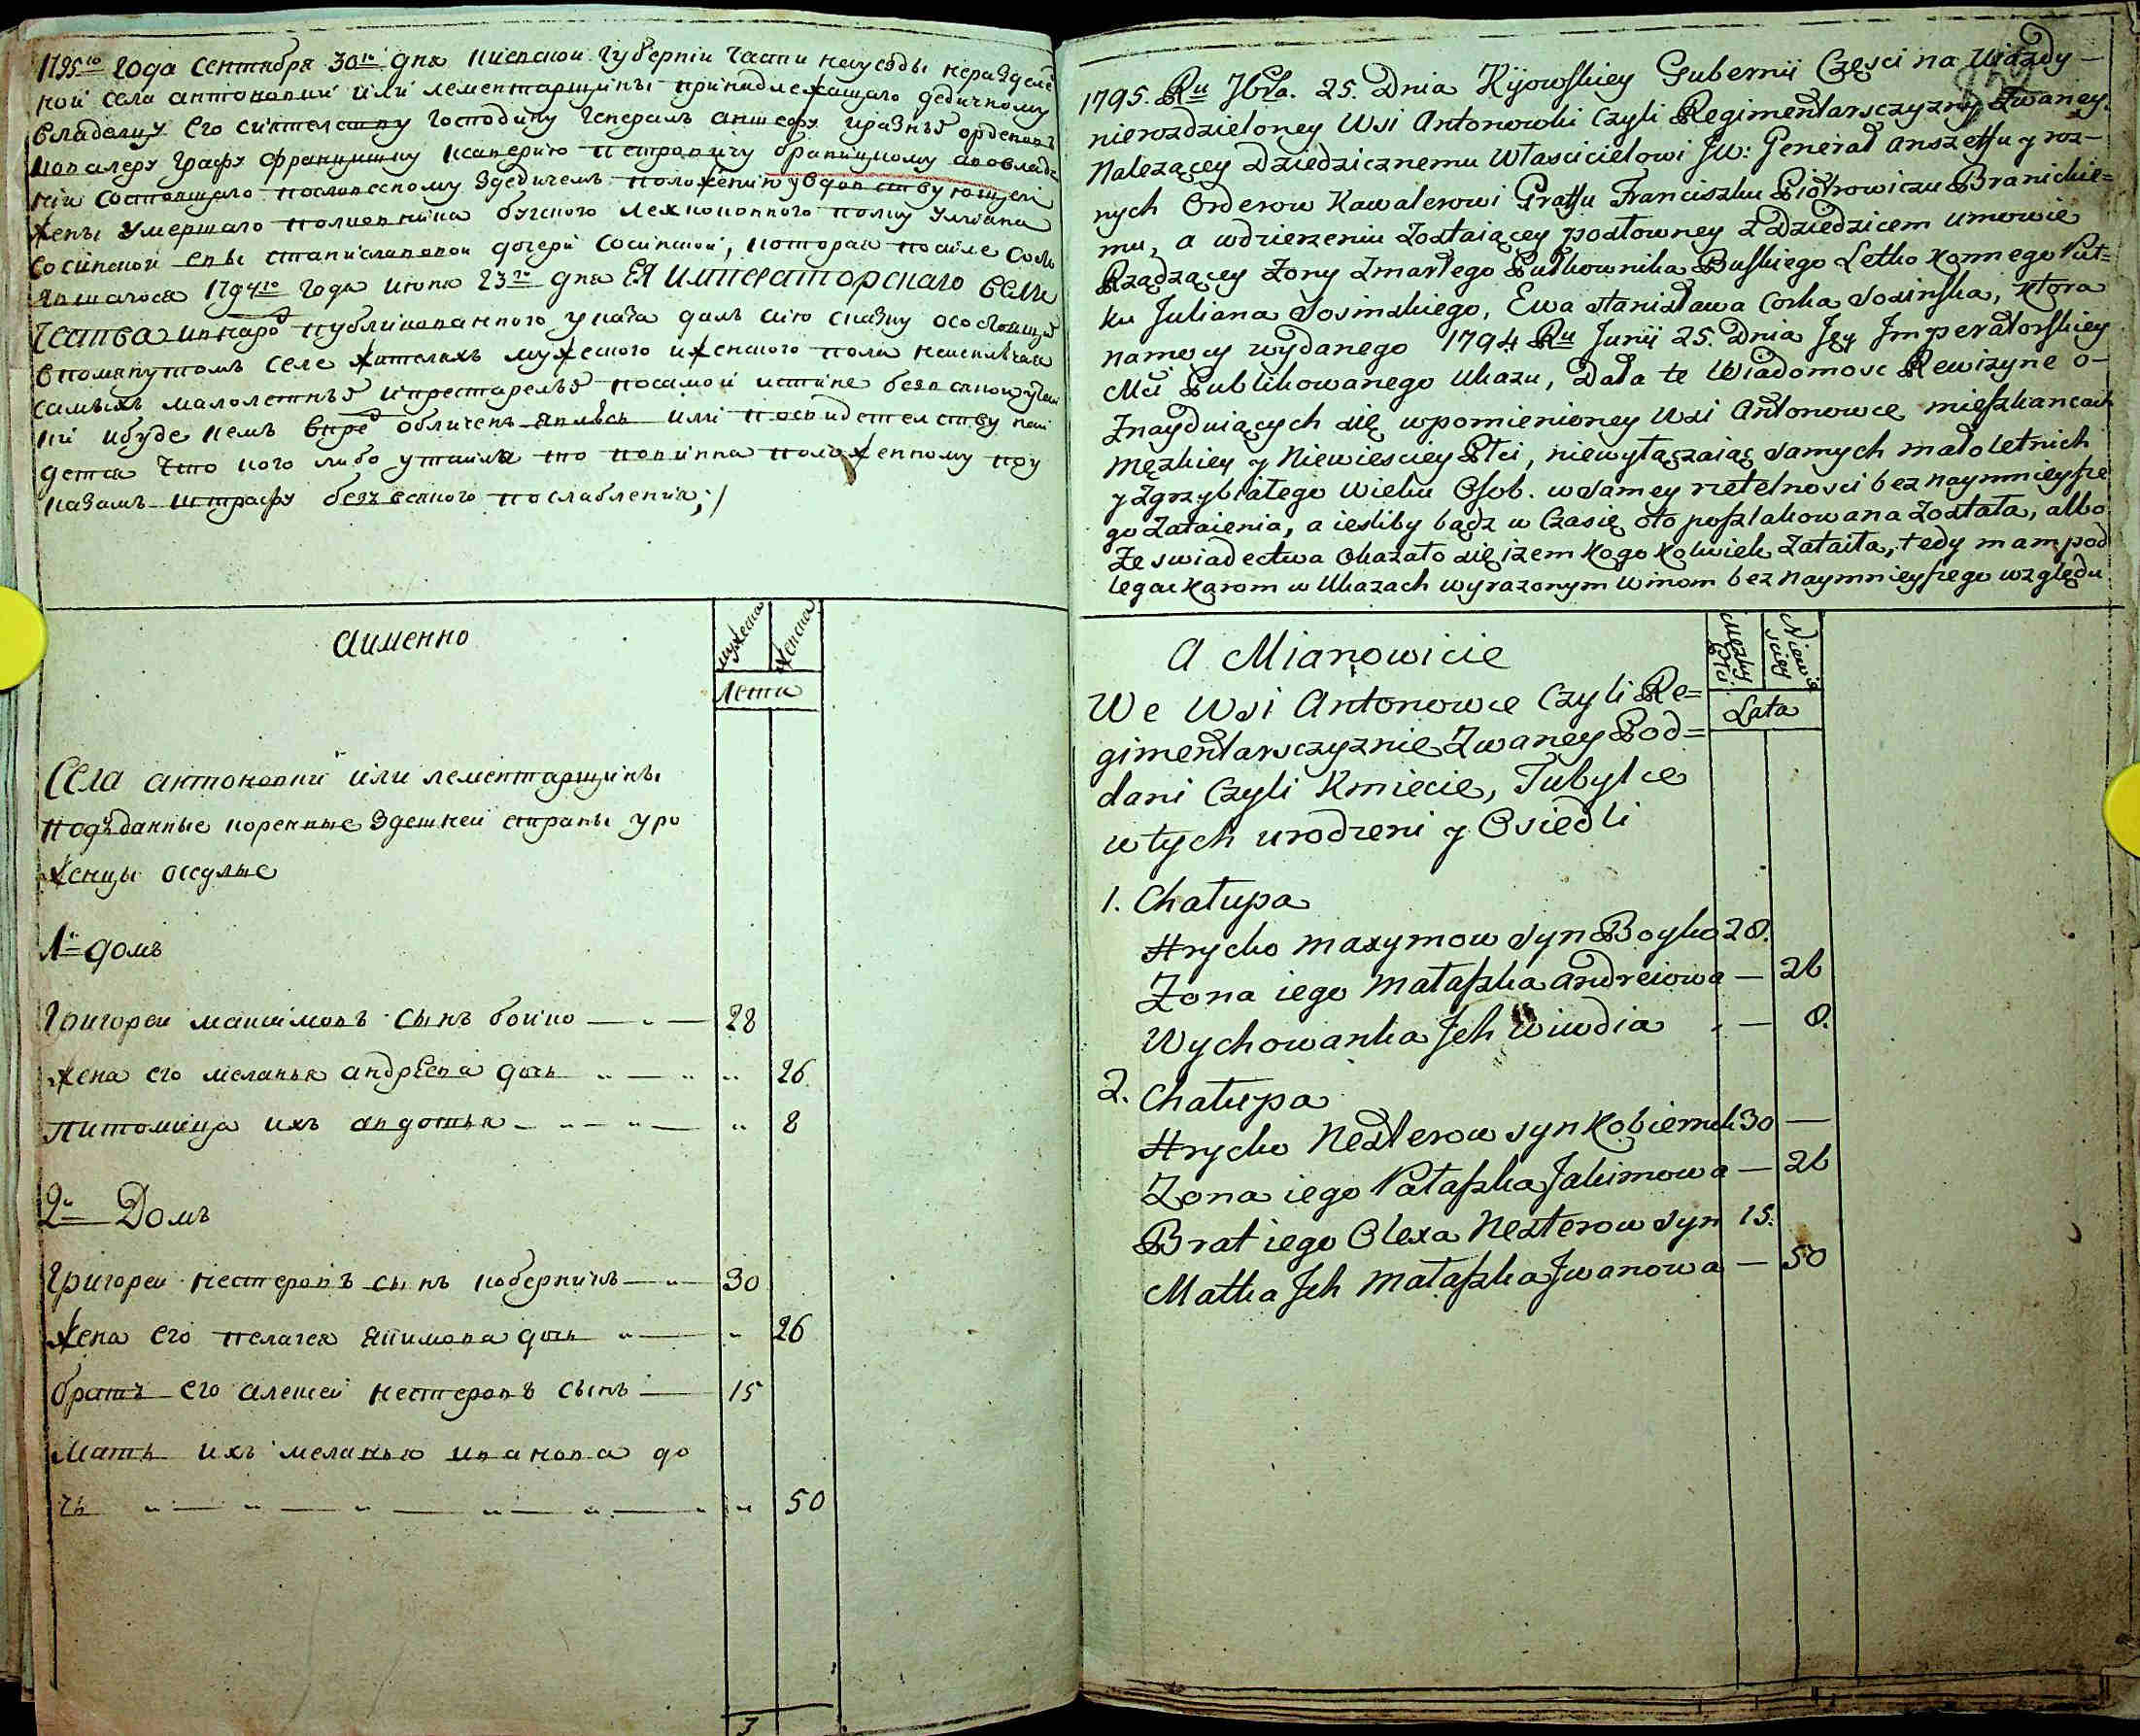 1795го года сентября 30го дня киевской губернии части науезды неразделе
ной села антоновки или лементарщины принадлежащаго дедичному
владелцу его сиятелству господину генералъ аншефу иразныхъ орденовъ
кавалеру графу францишку ксаверию петровичу браницкому авовладе
нии состоящаго пословесному здедичемъ положению
жены умершаго полковника бугского лехкоконного полку улиана
сосинской евы станиславовой дочери сосинской, которая
1794го года июня 23го дня ЕЯ императорскаго Вели
чества внаро публикованного указа далъ сию сказку осостоящи
впомянутомъ селе жителяхъ мужеского иженского пола неисключая
самыхъ малолетныхъ ипрестарелыхъ посамой истине безъ
ки ибуде кемъ впре обличенъ явлюсь или посвидетелству най
дется что кого либо утаила то повинна положенному поу
казамъ штрафу безъ всякого послабления;/
аименно
мужеска
женска
Лета
Села антоновки или лементарщины
подъданные коренные здешней страны уро
женцы оседлые
1й домъ
Григорей максимовъ сынъ бойко 28
жена его меланья андреева дочь 26
питомица ихъ авдотья 8
2й Домъ
Григорей нестеровъ сынъ коберникъ 30
жена его пелагея якимова дочь 26
братъ его алексей нестеровъ сынъ 15
Мать ихъ меланья иванова до
чь 50
3
1795. Ru 7bra. 25. Dnia Kijowskiey Gubernii Części na Uiazdy
nierozdzieloney Wsi Antonowki czyli Regimentarsczyzny Zwaney.
Nalezącey Dziedzicznemu Własicielowi Jw: Generał Anszeffu y roz-
nych Orderow Kawalerowi Graffu Franciszku Piotrowiczu Branickie=
mu, a wdzierzeniu Zostaiącey podłowney z Dziedzicem umowie
Rządzącey Zony Zmarłego Pułkownika Buskiego Letko Konnego Puł=
ku Juliana Sosinskiego, Ewa Stanisława Corka Sosinska, Ktora
namocy wydanego 1794 Ru Junii 25. Dnia Jey Imperatorskiey
Mci Publikowanego Ukazu, Dała te Wiadomosc Rewizyne o-
Znayduiących się wpomienioney Wsi Antonowce mieszkancach
Męzkiey y Niewiesciey Płci, niewyłączaiąc samych małoletnich
y Zgrzybiałego Wieku Osob. wsamey rzetelnosci bez naymnieysze
go Zataienia, a iesliby bądz w Czasię oto poszlakowana Została, albo
Ze swiadectwa Okazało się izem Kogo Kolwiek Zataiła, tedy mam pod
legac Karom w Ukazach wyrazonym Winom bez Naymnieyszego względu
A Mianowicie
Męzkiey Płci
Niewiesciey
Lata
We Wsi Antonowce Czyli Re=
gimentarsczyznie Zwaney Pod=
dani Czyli Kmiecie, Tubylce
wtych urodzeni y Osiedli
1. Chałupa
Hrycko Maxymow Syn Boyko 28.
Zona iego Małaszka Andreiowa — 26
Wychowanka Ich Wiwdia — 8.
2. Chałupa
Hrycko Nesterow syn Kobiernik 30 —
Zona iego Pałaszka Jakimowa — 26
Brat iego Olexa Nesterow Syn 15.
Matka Ich Małaszka Jwanowa — 50